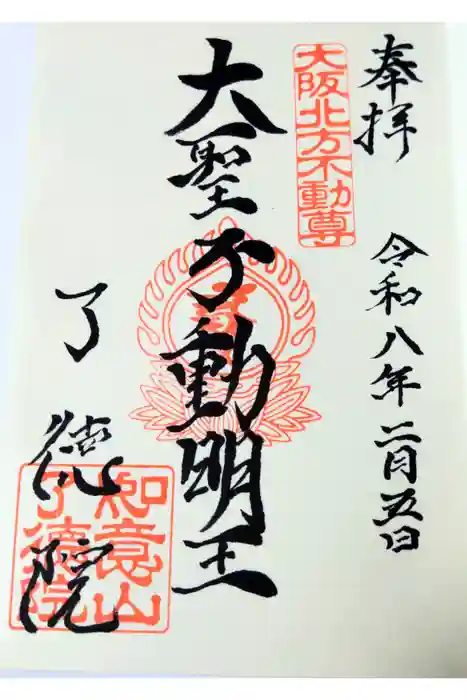 奉拝
令和八年二月五日
大阪北方不動尊
大聖不動明王
了徳院
如意山
了徳院